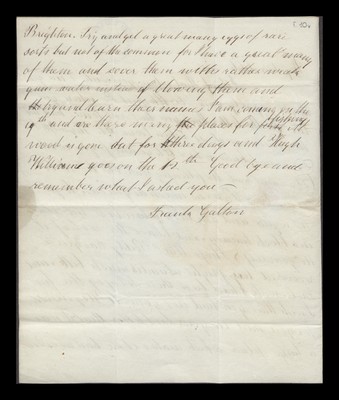 Brighton. Try and get a great many eggs of rare
sorts but not of the common for I have a great many
of them and cover them with rather weak
gum water instead of blowing them and
try and learn their names I am coming on the
19th and are there many places for fishing
wood is gone but for three days and Hugh
Williams goes on the th Good bye and
remember what I asked you —
Frank Galton